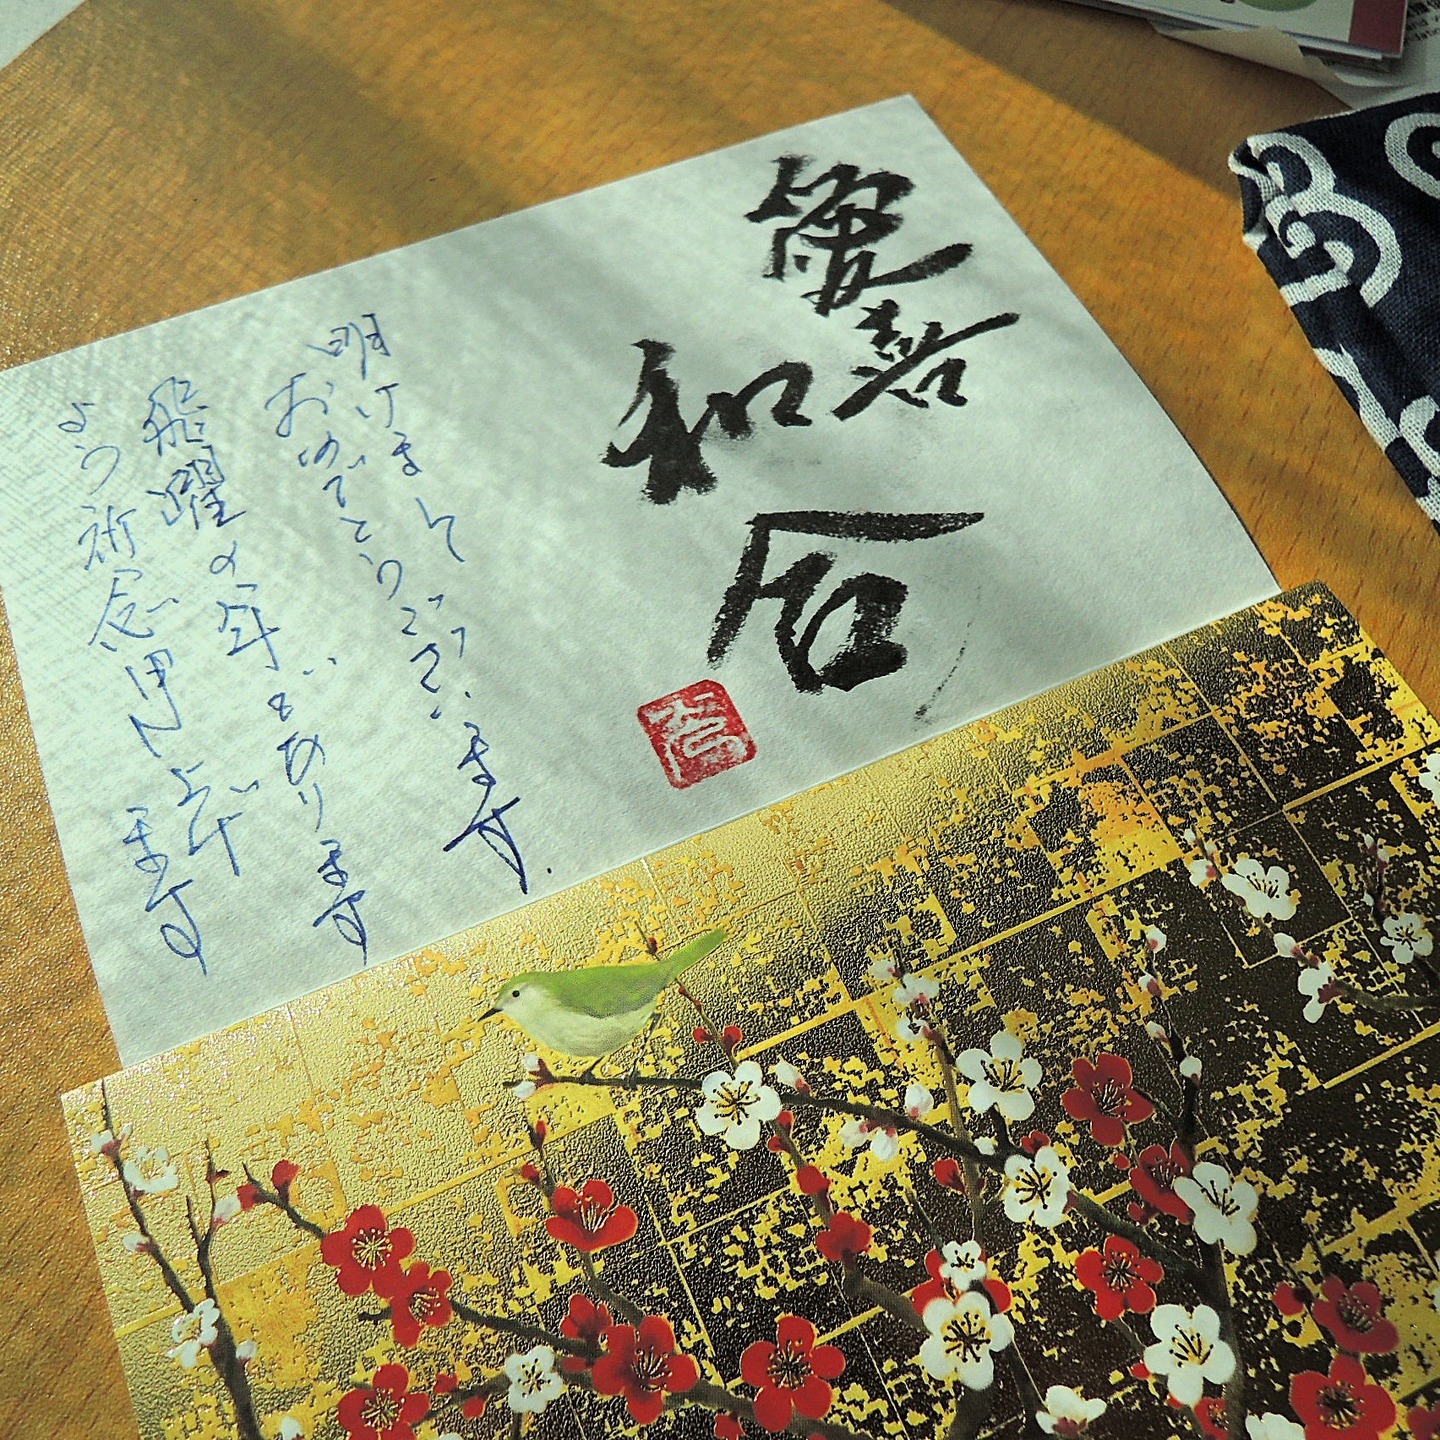 和合
明けまして
おめでとうございます.
飛躍の年であります
よう祈念申し上げます